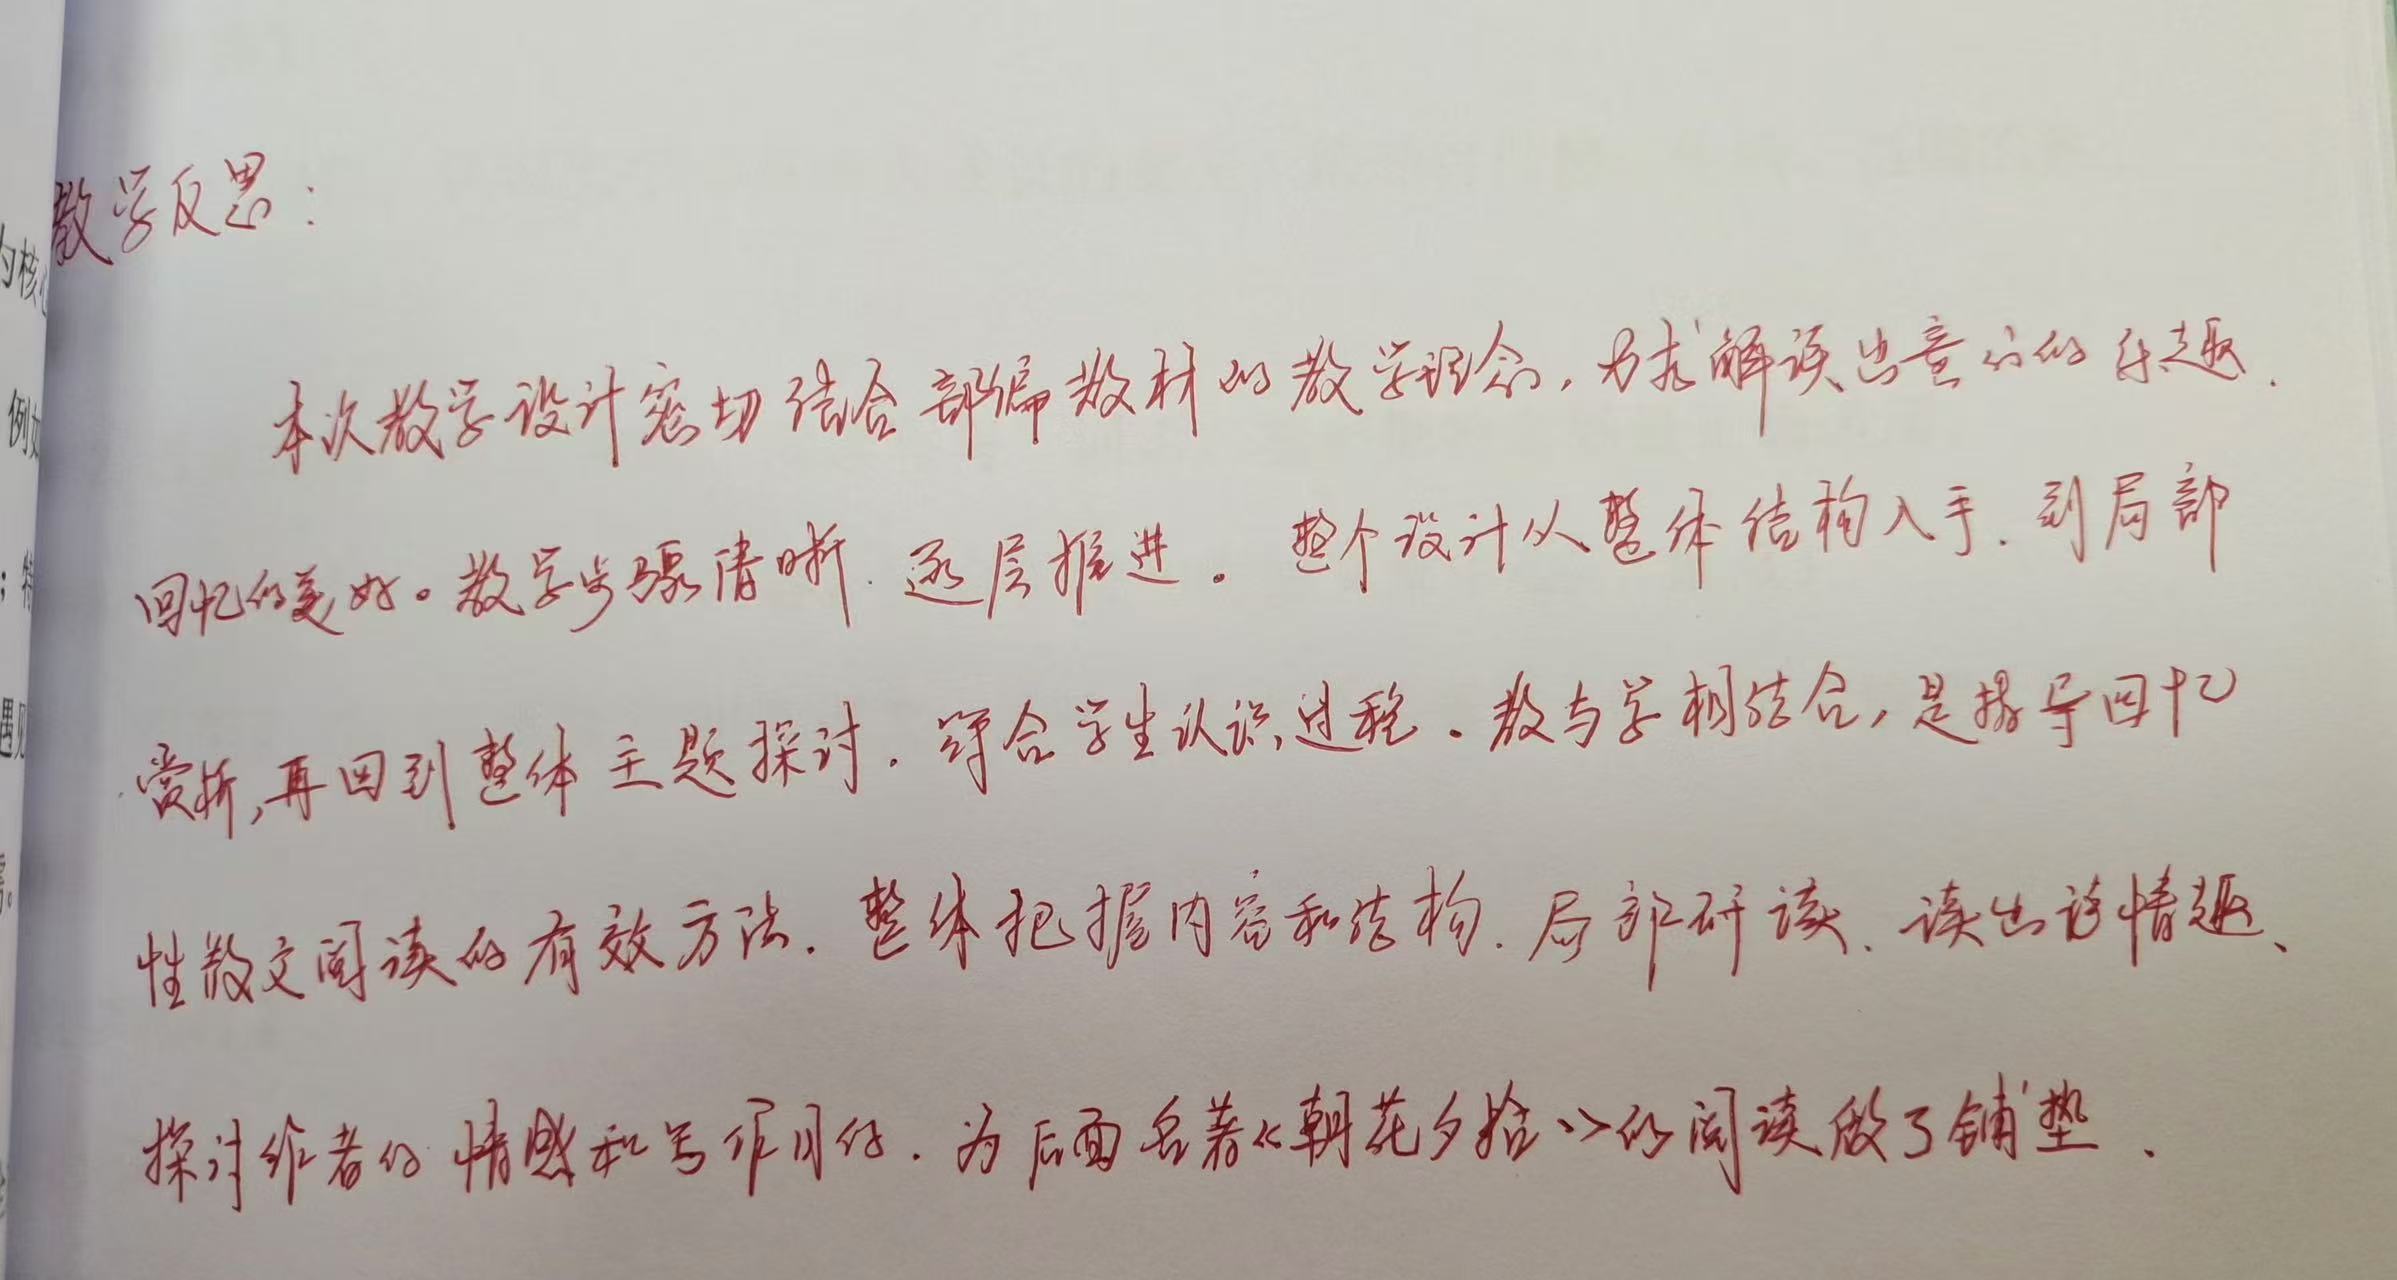 教学反思：
本次教学设计密切结合部编教材的教学理念，力求解读出童年的乐趣、
回忆的美好。教学步骤清晰、逐层推进。整个设计从整体结构入手、到局部
赏析，再回到整体主题探讨、符合学生认识过程。教与学相结合，是指导回忆
性散文阅读的有效方法、整体把握内容和结构、局部研读、读出情趣、
探讨作者的情感和写作目的、为后面名著《朝花夕拾》的阅读做了铺垫、
为核心
例如
；特
遇见